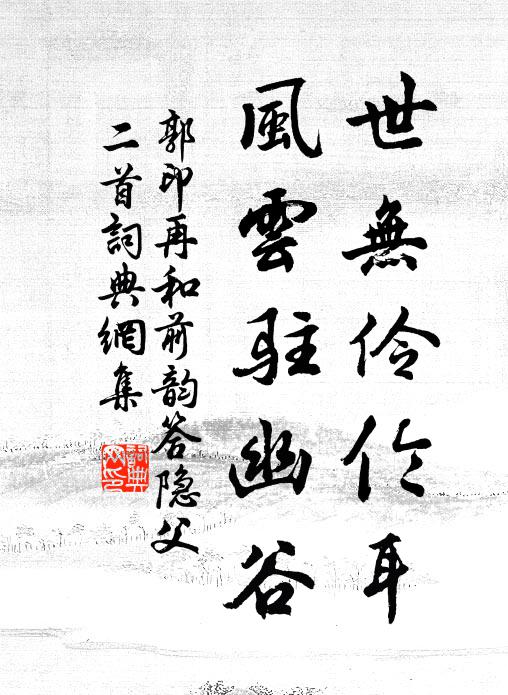 世無伶伦耳
風雲駐幽谷
郭印再和前韵答隐父
二首詞典網集
詞典
网印